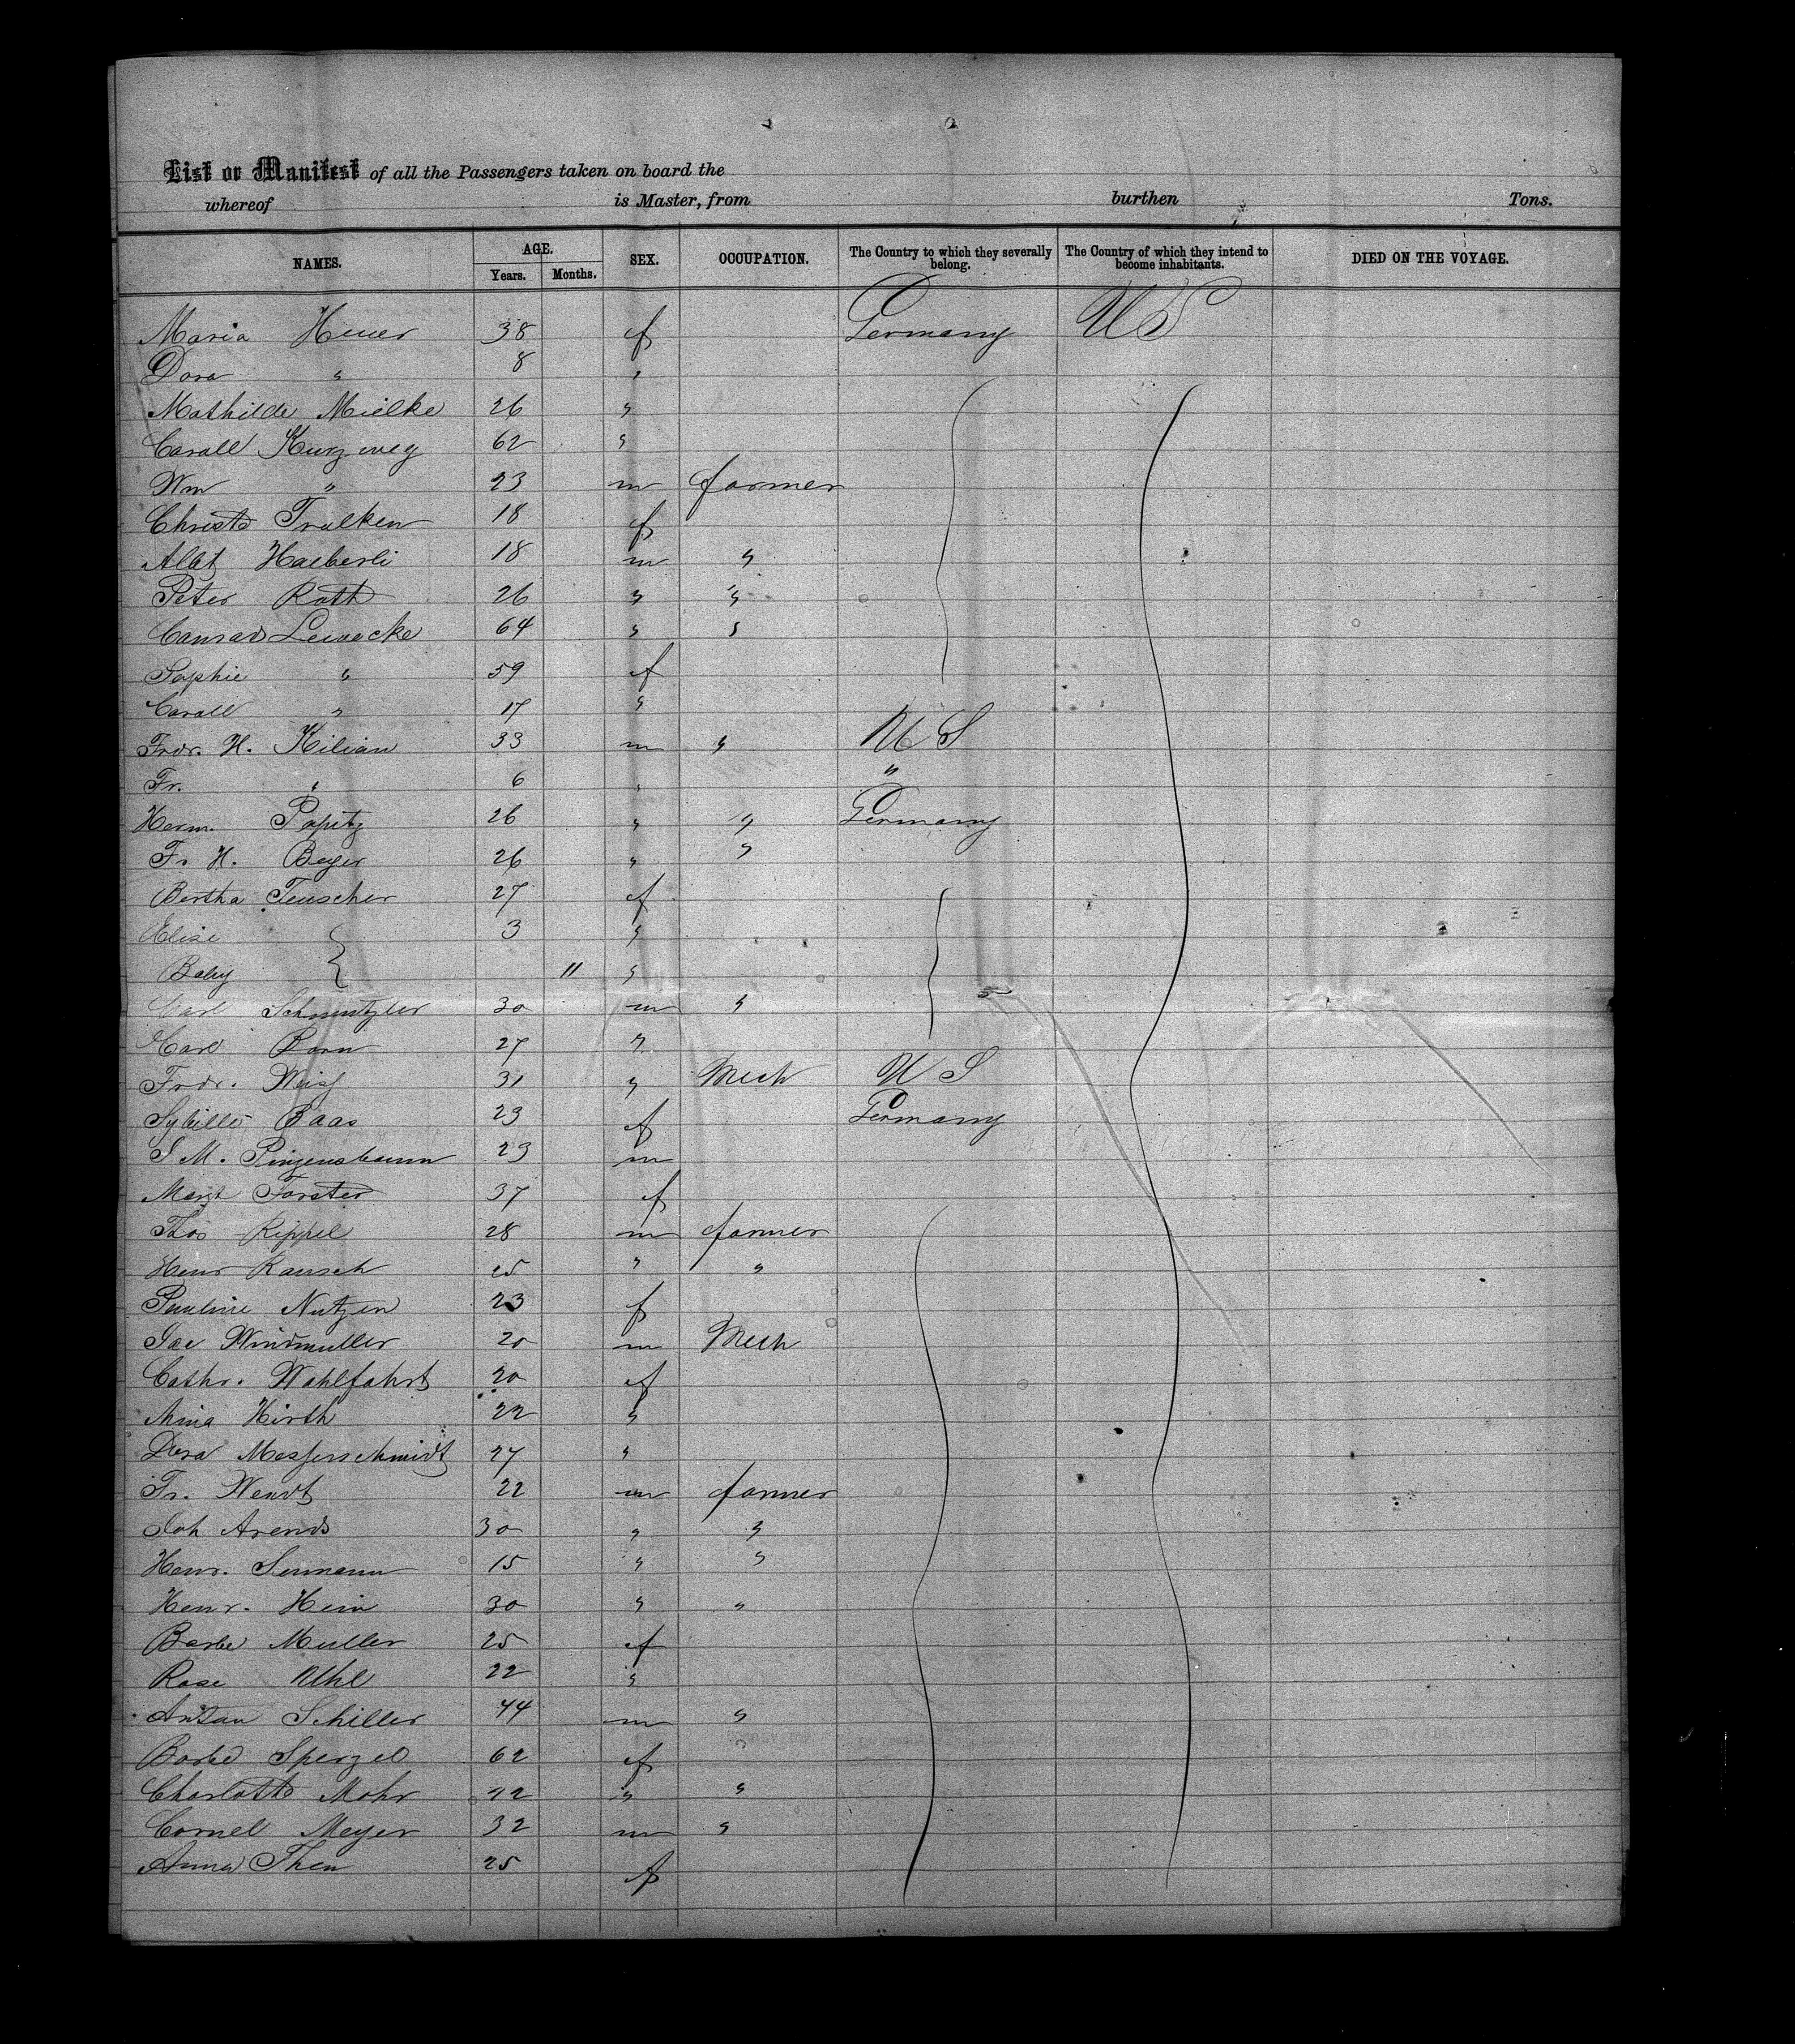 List or Manifest of all the Passengers taken on board the
whereof is Master, from burthen Tons.
NAMES. AGE. Years. Months. SEX. OCCUPATION. The Country to which they severally belong. The Country of which they intend to become inhabitants. DIED ON THE VOYAGE.
Maria Heuer 38 f Germany U S
Dora " 8 "
Mathilde Mielke 26 "
Carall Kurzweg 62 "
Wm " 23 m farmer
Christe Tralken 18 f
Albt Haeberli 18 m "
Peter Roth 26 " "
Conrad Lewecke 64 " "
Sophie " 59 f
Carall " 17 "
Frdr. H. Kilian 33 m " U S
Fr. " 6 " "
Herm. Popitz 26 " " Germany
Fr H. Beyer 26 " "
Bertha Teuscher 27 f
Elise 3 "
Baby 11 "
Carl 30 m "
Carl Born 27 "
Frdr. Weiss 31 " Mech U S
Sybille Baas 23 f Germany
J M. 23 m
Margt Forster 37 f
Thos Rippel 28 m farmer
Henr Rausch 25 " "
Pauline Nutzen 23 f
Jac Windmuller 20 m Mech
Cathr. Wahlfahrt 20 f
Mina Hirth 22 "
Dora Messerschmidt 27 "
Fr. Wendt 22 m farmer
Joh Arends 30 " "
Henr. 15 " "
Henr. Hein 30 " "
Barbe Muller 25 f
Rosa Uhl 22 "
Anton Schiller 44 m "
Barbe Sperzel 62 f
Charlotte Mohr 42 " "
Cornel Meyer 32 m "
Anna Then 25 f